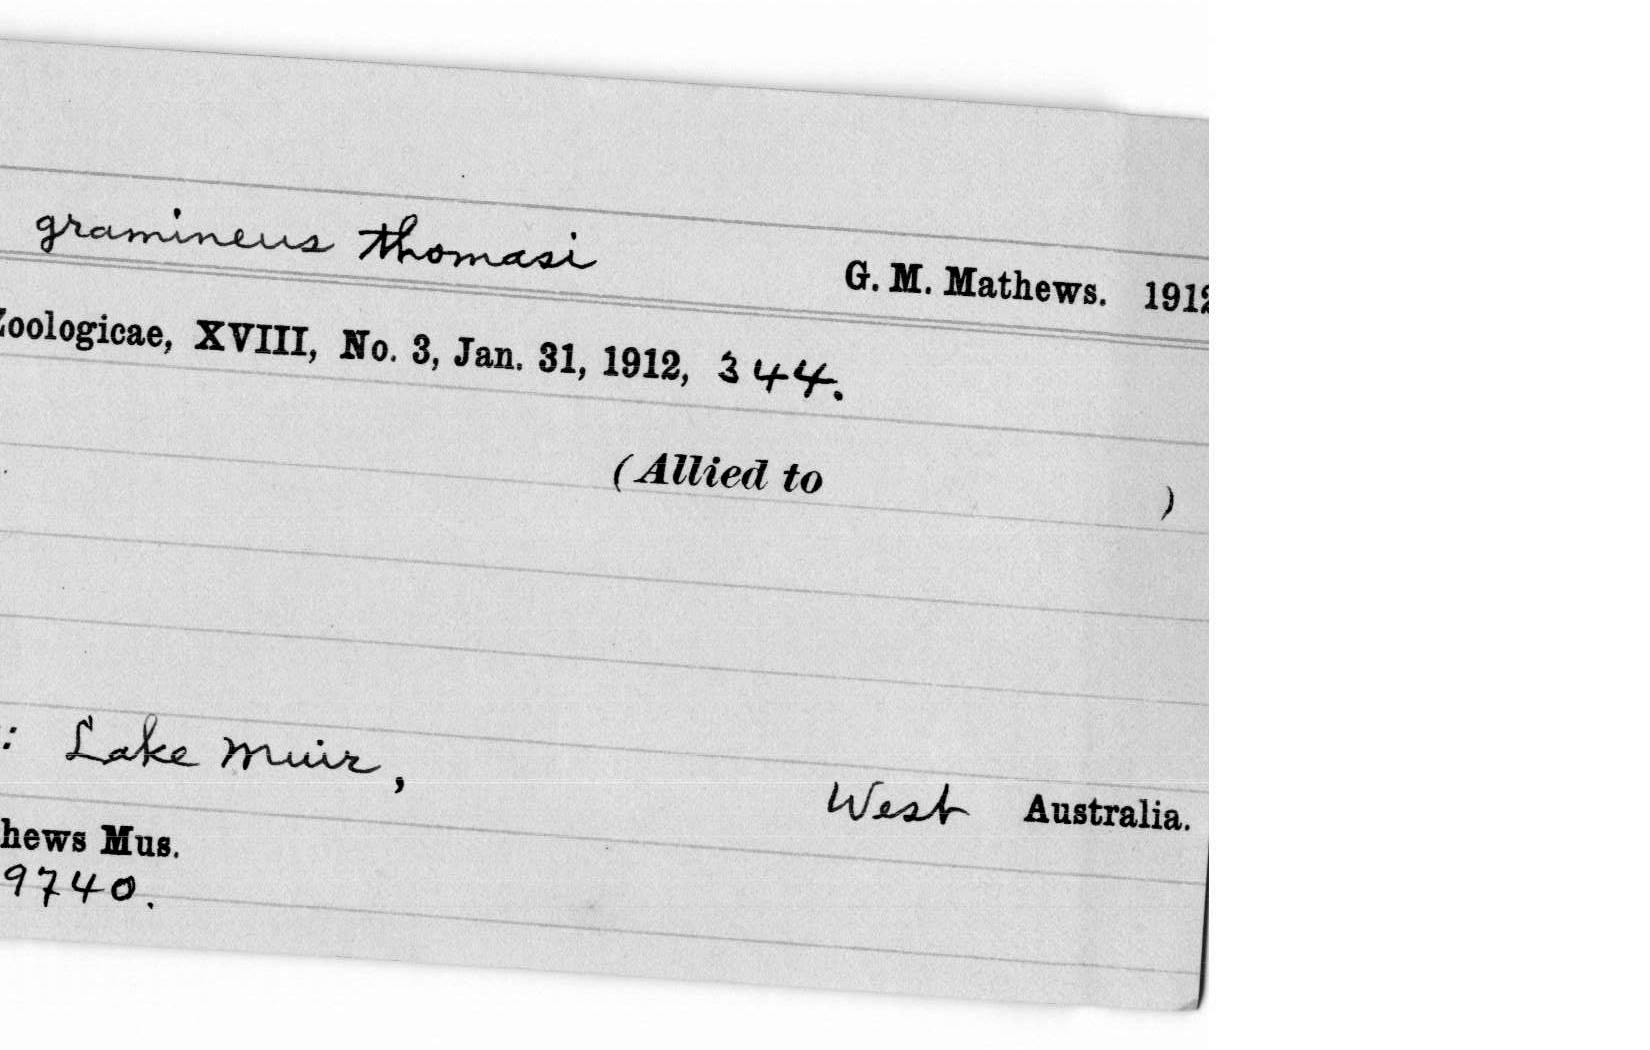 gramineus thomasi G. M. Mathews. 1912
Zoologicae, XVIII, No. 3, Jan. 31, 1912, 344.
(Allied to )
: Lake Muir, West Australia.
hews Mus.
9740.